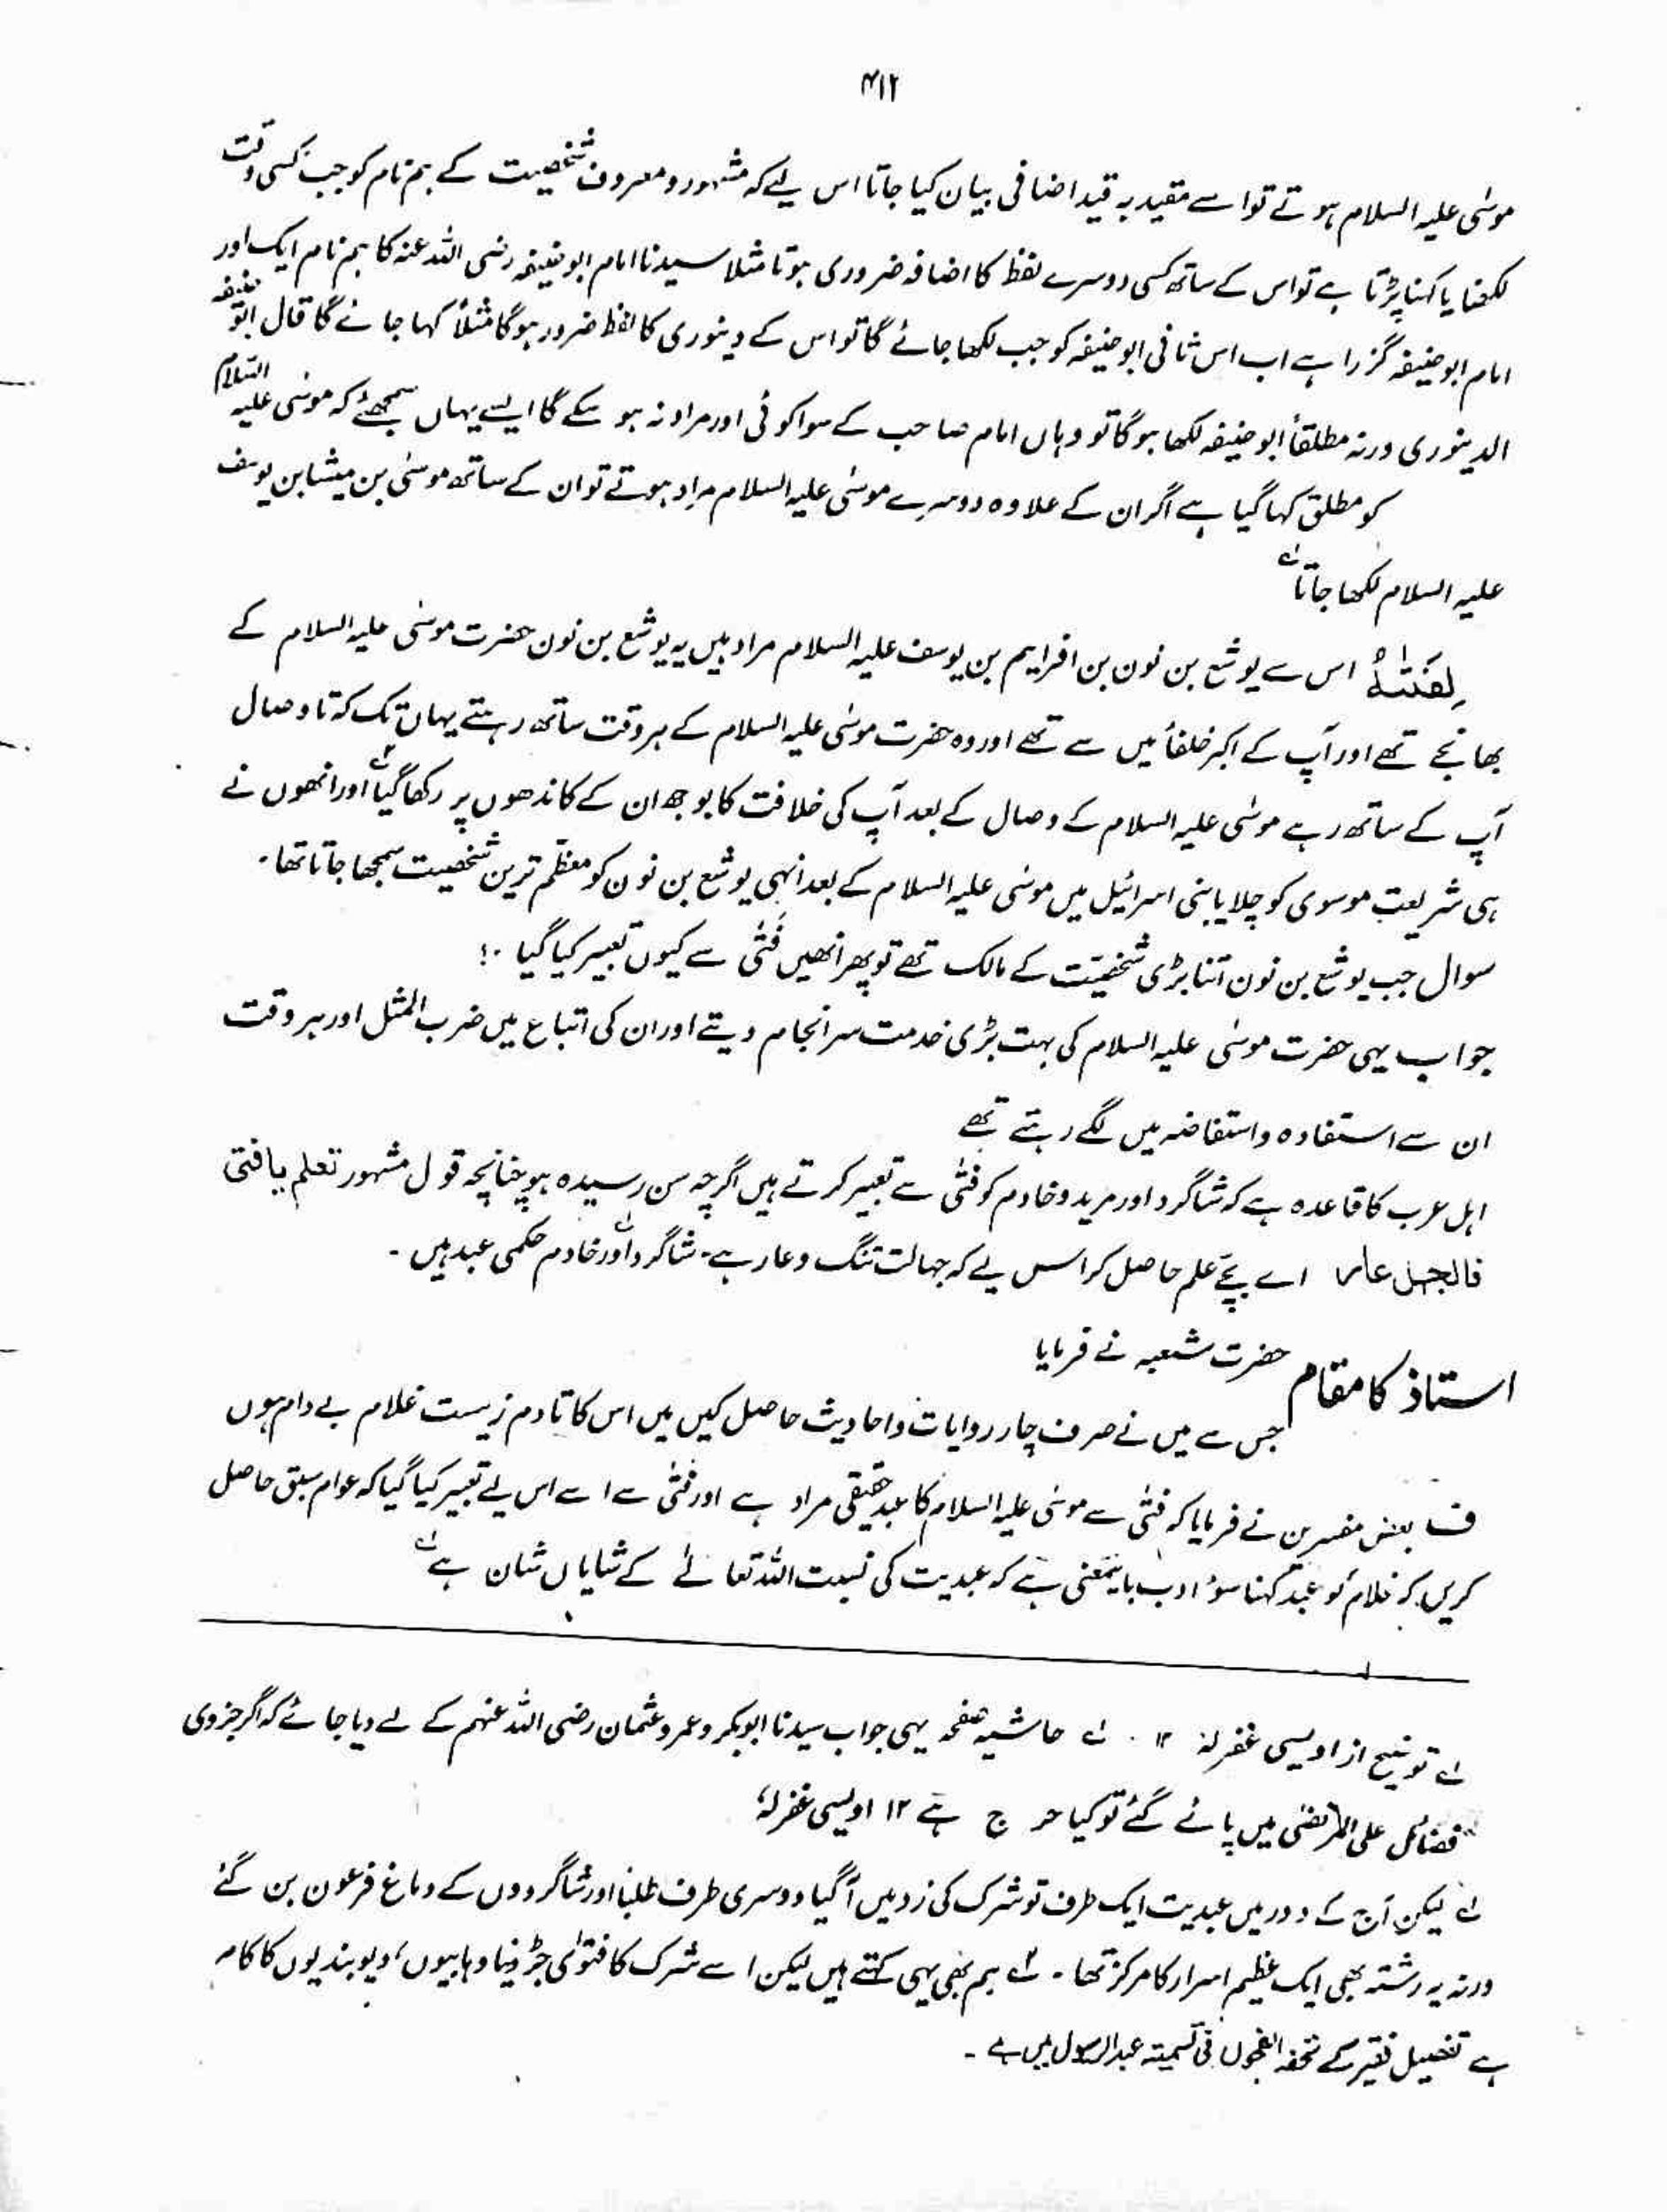 ۴۱۲
موسٰی علیہ السلام ہوتے تو اسے مقید بہ قید اضافی بیان کیا جاتا اس لیے کہ مشہور و معروف شخصیت کے ہم نام کو جب کسی وقت
لکھنا یا کہنا پڑتا ہے تو اس کے ساتھ کسی دوسرے لفظ کا اضافہ ضروری ہوتا مثلا سیدنا امام ابو حنیفہ رضی اللہ عنہ کا ہم نام ایک اور
امام ابو حنیفہ گزرا ہے اب اس ثانی ابو حنیفہ کو جب لکھا جائے گا تو اس کے دینوری کا لفظ ضرور ہوگا مثلاً کہا جائے گا قال ابو حنیفہ
الدینوری ورنہ مطلقاً ابو حنیفہ لکھا ہوگا تو وہاں امام صاحب کے سوا کوئی اور مراد نہ ہو سکے گا ایسے یہاں سمجھئے کہ موسٰی علیہ السّلام
کو مطلق کہا گیا ہے اگر ان کے علاوہ دوسرے موسٰی علیہ السلام مراد ہوتے تو ان کے ساتھ موسٰی بن میشا بن یوسف
علیہ السلام لکھا جاتا لے
لِفَتٰىهُ اس سے یوشع بن نون بن افرایم بن یوسف علیہ السلام مراد ہیں یہ یوشع بن نون حضرت موسٰی علیہ السلام کے
بھانجے تھے اور آپ کے اکبر خلفاً میں سے تھے اور وہ حضرت موسٰی علیہ السلام کے ہر وقت ساتھ رہتے یہاں تک کہ تا وصال
آپ کے ساتھ رہے موسٰی علیہ السلام کے وصال کے بعد آپ کی خلافت کا بوجھ ان کے کاندھوں پر رکھا گیا ۲ے اور انھوں نے
ہی شریعت موسوی کو چلایا بنی اسرائیل میں موسٰی علیہ السلام کے بعد انہی یوشع بن نون کو معظّم ترین شخصیت سمجھا جاتا تھا۔
سوال جب یوشع بن نون اتنا بڑی شخصیّت کے مالک تھے تو پھر انھیں فَتٰی سے کیوں تعبیر کیا گیا ۔؛
جواب یہی حضرت موسٰی علیہ السلام کی بہت بڑی خدمت سرانجام دیتے اور ان کی اتباع میں ضرب المثل اور ہر وقت
ان سے استفادہ و استفاضہ میں لگے رہتے تھے
اہل عرب کا قاعدہ ہے کہ شاگرد اور مرید و خادم کو فتٰی سے تعبیر کرتے ہیں اگرچہ سن رسیدہ ہو چنانچہ قول مشہور تعلم یا فتی
فالجھل عار اے بچے علم حاصل کر اس لیے کہ جہالت ننگ و عار ہے۔ شاگرد لے اور خادم حکمی عبد ہیں ۔
استاذ کا مقام حضرت شعبہ نے فرمایا
جس سے میں نے صرف چار روایات و احادیث حاصل کیں میں اس کا تا دم زیست غلام بے دام ہوں
ف بعض مفسرین نے فرمایا کہ فتٰی سے موسٰی علیہ السلام کا عبد حقیقی مراد ہے اور فتٰی سے اسے اس لیے تعبیر کیا گیا کہ عوام سبق حاصل
کریں کہ غلام کو عبد کہنا سوُ ادب بایمعنی ہے کہ عبدیت کی نسبت اللہ تعالٰے کے شایاں شان ہے لے
لے توضیح از اویسی غفرلہ ۱۲ . لے حاشیہ صفحہ یہی جواب سیدنا ابوبکر و عمر و عثمان رضی اللہ عنہم کے لے دیا جائے کہ اگر جزوی
فضائل علی المرتضٰی میں پائے گئے تو کیا حر ج ہے ۱۲ اویسی غفرلہ
لے لیکن آج کے دور میں عبدیت ایک طرف تو شرک کی زد میں آگیا دوسری طرف طلبا اور شاگردوں کے دماغ فرعون بن گئے
ورنہ یہ رشتہ بھی ایک عظیم اسرار کا مرکز تھا ۔ ۲ے ہم بھی یہی کہتے ہیں لیکن اسے شرک کا فتوٰی جڑ دینا وہابیوں، دیوبندیوں کا کام
ہے تفصیل فقیر کے تحفہ فی تسمیتہ عبد الرسول میں ہے ۔